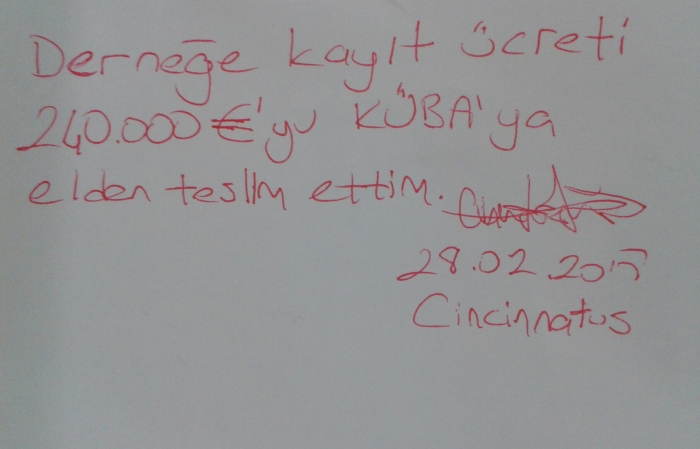 Derneğe kayıt ücreti
240.000 €'yu KÜBA'ya
elden teslim ettim.
28.02.2015
Cincinnatus